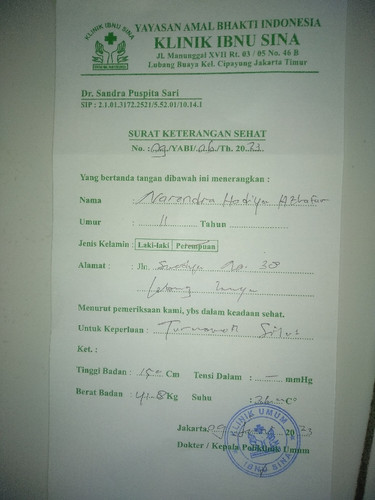 KLINIK IBNU SINA
YAYASAN AMAL BHAKTI INDONESIA
KLINIK IBNU SINA
Jl. Manunggal XVII Rt. 03 / 05 No. 46 B
Lubang Buaya Kel. Cipayung Jakarta Timur
Dr. Sandra Puspita Sari
SIP : 2.1.01.3172.2521/5.52.01/10.14.1
SURAT KETERANGAN SEHAT
No. : 09/YABI/06/Th. 2023
Yang bertanda tangan dibawah ini menerangkan :
Nama : Narendra
Umur : 11 Tahun
Jenis Kelamin : Laki-laki Perempuan
Alamat : Jln. No. 
Lubang Buaya
Menurut pemeriksaan kami, ybs dalam keadaan sehat.
Untuk Keperluan :
Ket. :
Tinggi Badan : Cm Tensi Dalam : - mmHg
Berat Badan : 41.8 Kg Suhu : C°
Jakarta, 09 2023
Dokter / Kepala Poliklinik Umum
KLINIK UMUM
IBNU SINA